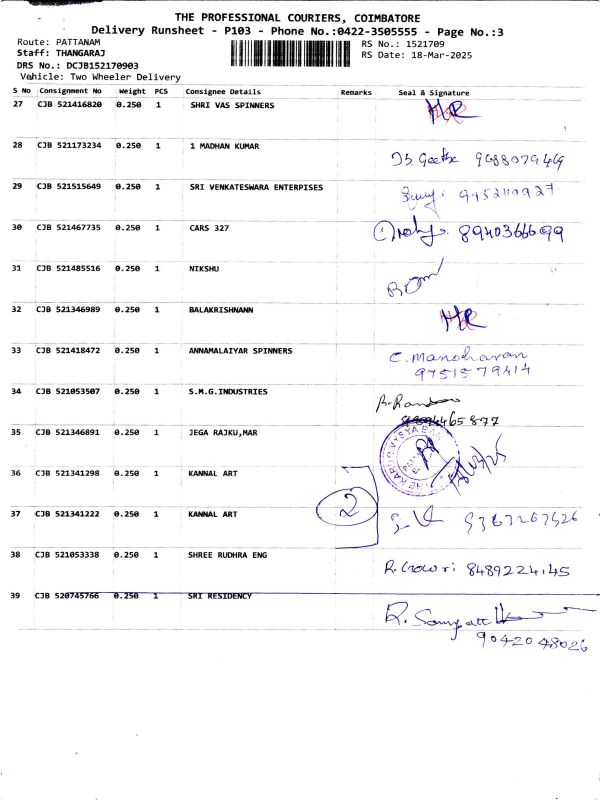 THE PROFESSIONAL COURIERS, COIMBATORE
Delivery Runsheet - P103 - Phone No.:0422-3505555 - Page No.:3
Route: PATTANAM RS No.: 1521709
Staff: THANGARAJ RS Date: 18-Mar-2025
DRS No.: DCJB152170903
Vehicle: Two Wheeler Delivery
S No Consignment No Weight PCS Consignee Details Remarks Seal & Signature
27 CJB 521416820 0.250 1 SHRI VAS SPINNERS
28 CJB 521173234 0.250 1 1 MADHAN KUMAR
Geetha 9688079469
29 CJB 521515649 0.250 1 SRI VENKATESWARA ENTERPISES
30 CJB 521467735 0.250 1 CARS 327
8940366699
31 CJB 521485516 0.250 1 NIKSHU
32 CJB 521346989 0.250 1 BALAKRISHNANN
33 CJB 521418472 0.250 1 ANNAMALAIYAR SPINNERS
C. Manoharan
9751579414
34 CJB 521053507 0.250 1 S.M.G.INDUSTRIES
35 CJB 521346891 0.250 1 JEGA RAJKU,MAR
36 CJB 521341298 0.250 1 KANNAL ART
2
37 CJB 521341222 0.250 1 KANNAL ART
38 CJB 521053338 0.250 1 SHREE RUDHRA ENG
R. Gowri 8489224145
39 CJB 520745766 0.250 1 SRI RESIDENCY
9042048026